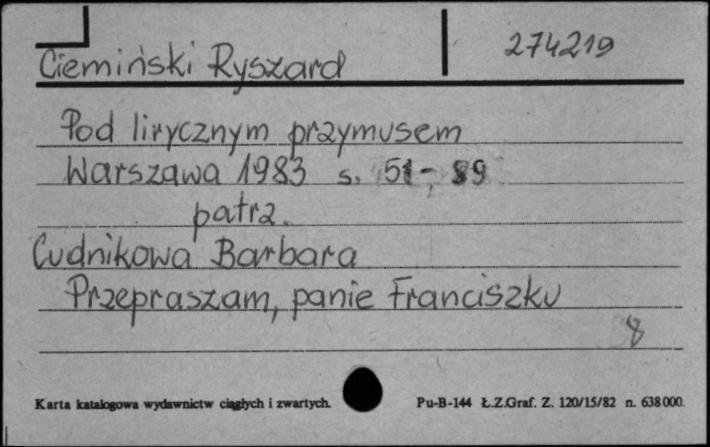 Ciemiński Ryszard
274219
Pod lirycznym przymusem
Warszawa 1983 s. 51 - 89
patrz.
Cudnikowa Barbara
Przepraszam, panie Franciszku
8
Karta katalogowa wydawnictw ciągłych i zwartych.
Pu-B-144 Ł.Z.Graf. Z. 120/15/82 n. 638000.